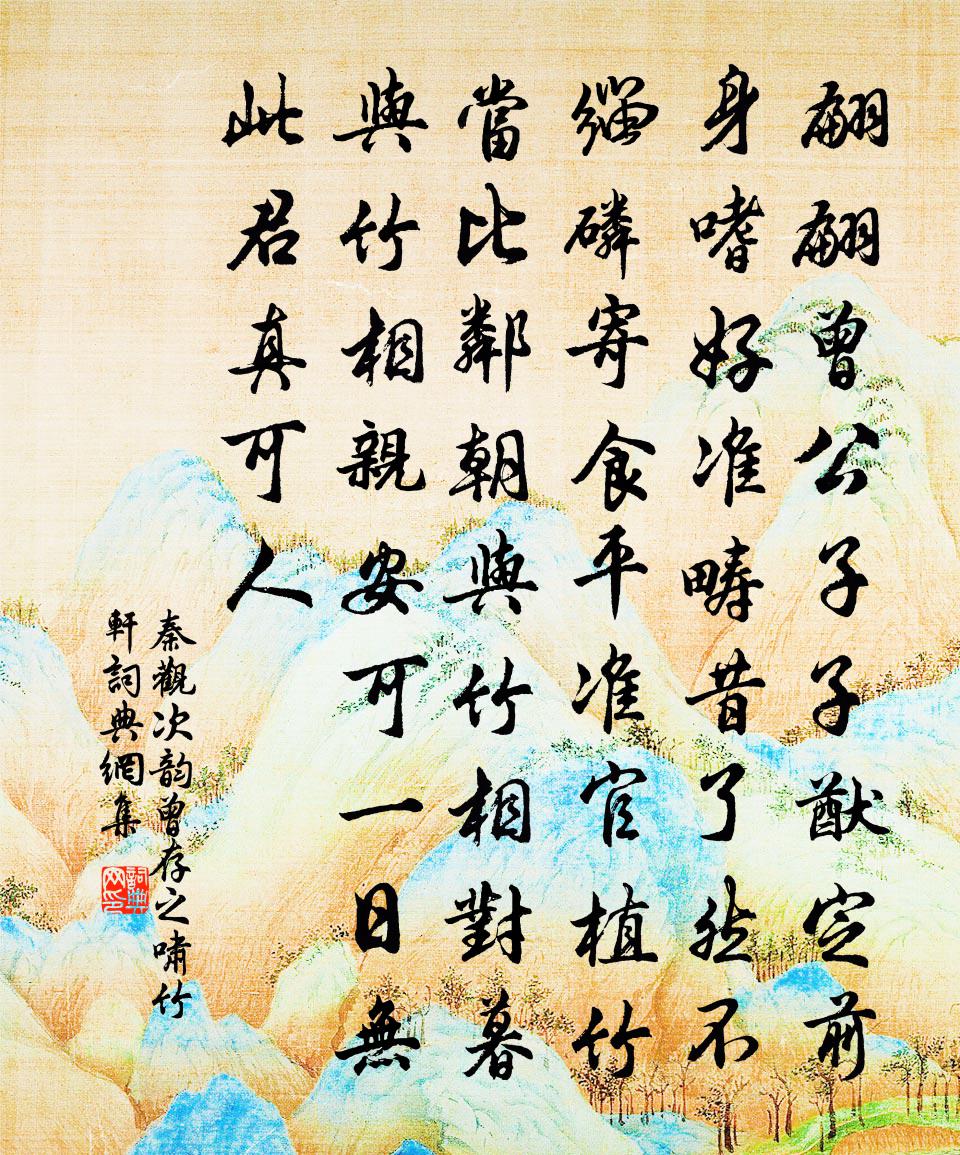 翩翩曾公子子猷定前
身嗜好准疇昔了然不
緇磷寄食平准官植竹
當比鄰朝與竹相對暮
與竹相親安可一日無
此君真可人
秦觀次韵曾存之嘯竹
軒詞典網集
詞典
网印